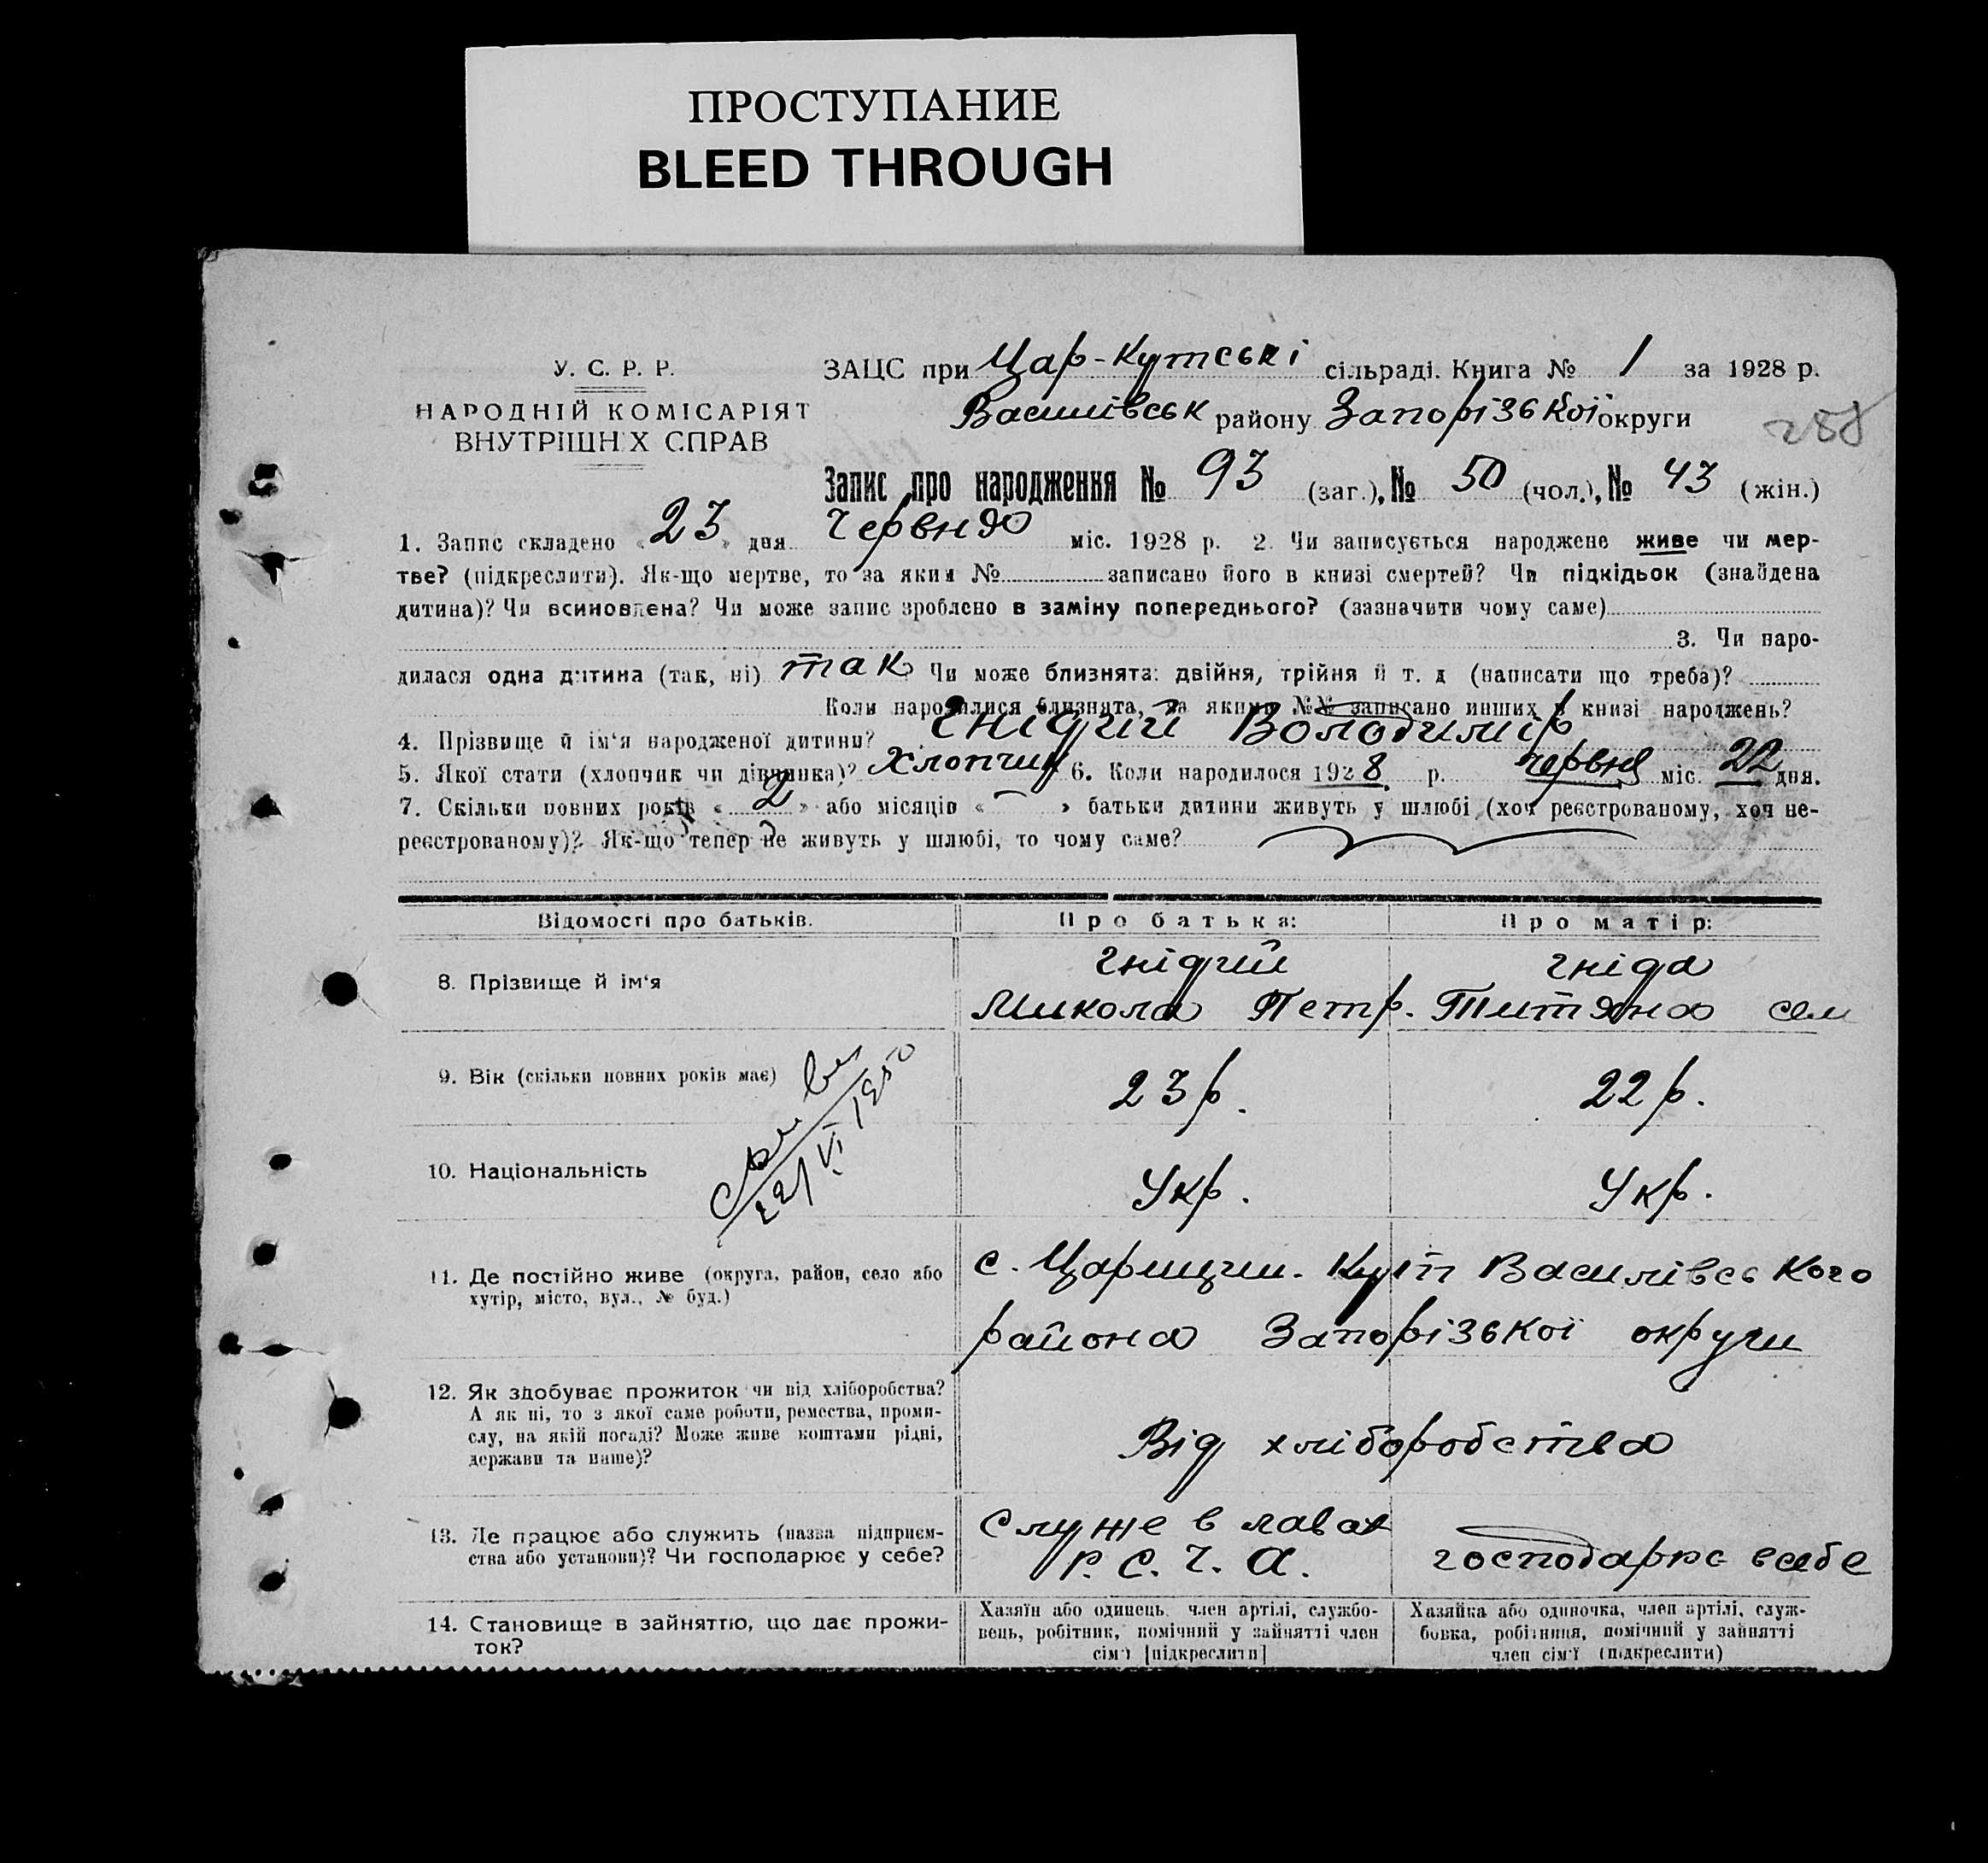 ПРОСТУПАНИЕ
BLEED THROUGH
У. С. Р. Р.
НАРОДНІЙ КОМІСАРІЯТ
ВНУТРІШНІХ СПРАВ
ЗАЦС при Цар-Кутські сільраді. Книга № 1 за 1928 р.
Василівськ району Запорізької округи
288
Запис про народження № 93 (заг.), № 50 (чол.), № 43 (жін.)
1. Запис складено « 23 » дня червня міс. 1928 р. 2. Чи записується народжене живе чи мер-
тве? (підкреслити). Як-що мертве, то за яким № записано його в книзі смертей? Чи підкідьок (знайдена
дитина)? Чи всиновлена? Чи може запис зроблено в заміну попереднього? (зазначити чому саме)
3. Чи наро-
дилася одна дитина (так, ні) так Чи може близнята: двійня, трійня й т. д (написати що треба)?
Коли народилися близнята, за якими №№ записано инших в книзі народжень?
4. Прізвище й ім'я народженої дитини? Гнідий Володимір
5. Якої стати (хлопчик чи дівчинка)? Хлопчик 6. Коли народилося 1928 р. червня міс. 22 дня.
7. Скільки повних років « 2 » або місяців « – » батьки дитини живуть у шлюбі (хоч реєстрованому, хоч не-
реєстрованому)? Як-що тепер не живуть у шлюбі, то чому саме?
Відомості про батьків. Про батька: Про матір:
8. Прізвище й ім'я
Гнідий Гніда
Микола Петр. Титяна сем
9. Вік (скільки повних років має) 23 р. 22 р.
22/VI 1950
10. Національність Укр. Укр.
11. Де постійно живе (округа, район, село або
хутір, місто, вул., № буд.)
с. Царицин. Кут Василівського
района Запорізької округи
12. Як здобуває прожиток чи від хліборобства?
А як ні, то з якої саме роботи, ремества, проми-
слу, на якій посаді? Може живе коштами рідні,
держави та инше)?
Від хліборобства
13. Де працює або служить (назва підприєм-
ства або установи)? Чи господарює у себе?
Служе в лавах
Р. С. Ч. А.
господарює в себе
14. Становище в зайняттю, що дає прожи-
ток?
Хазяїн або одинець, член артілі, службо-
вець, робітник, помічний у зайнятті член
сім'ї [підкреслити]
Хазяйка або одиночка, член артілі, служ-
бовка, робітниця, помічний у зайнятті
член сім'ї (підкреслити)